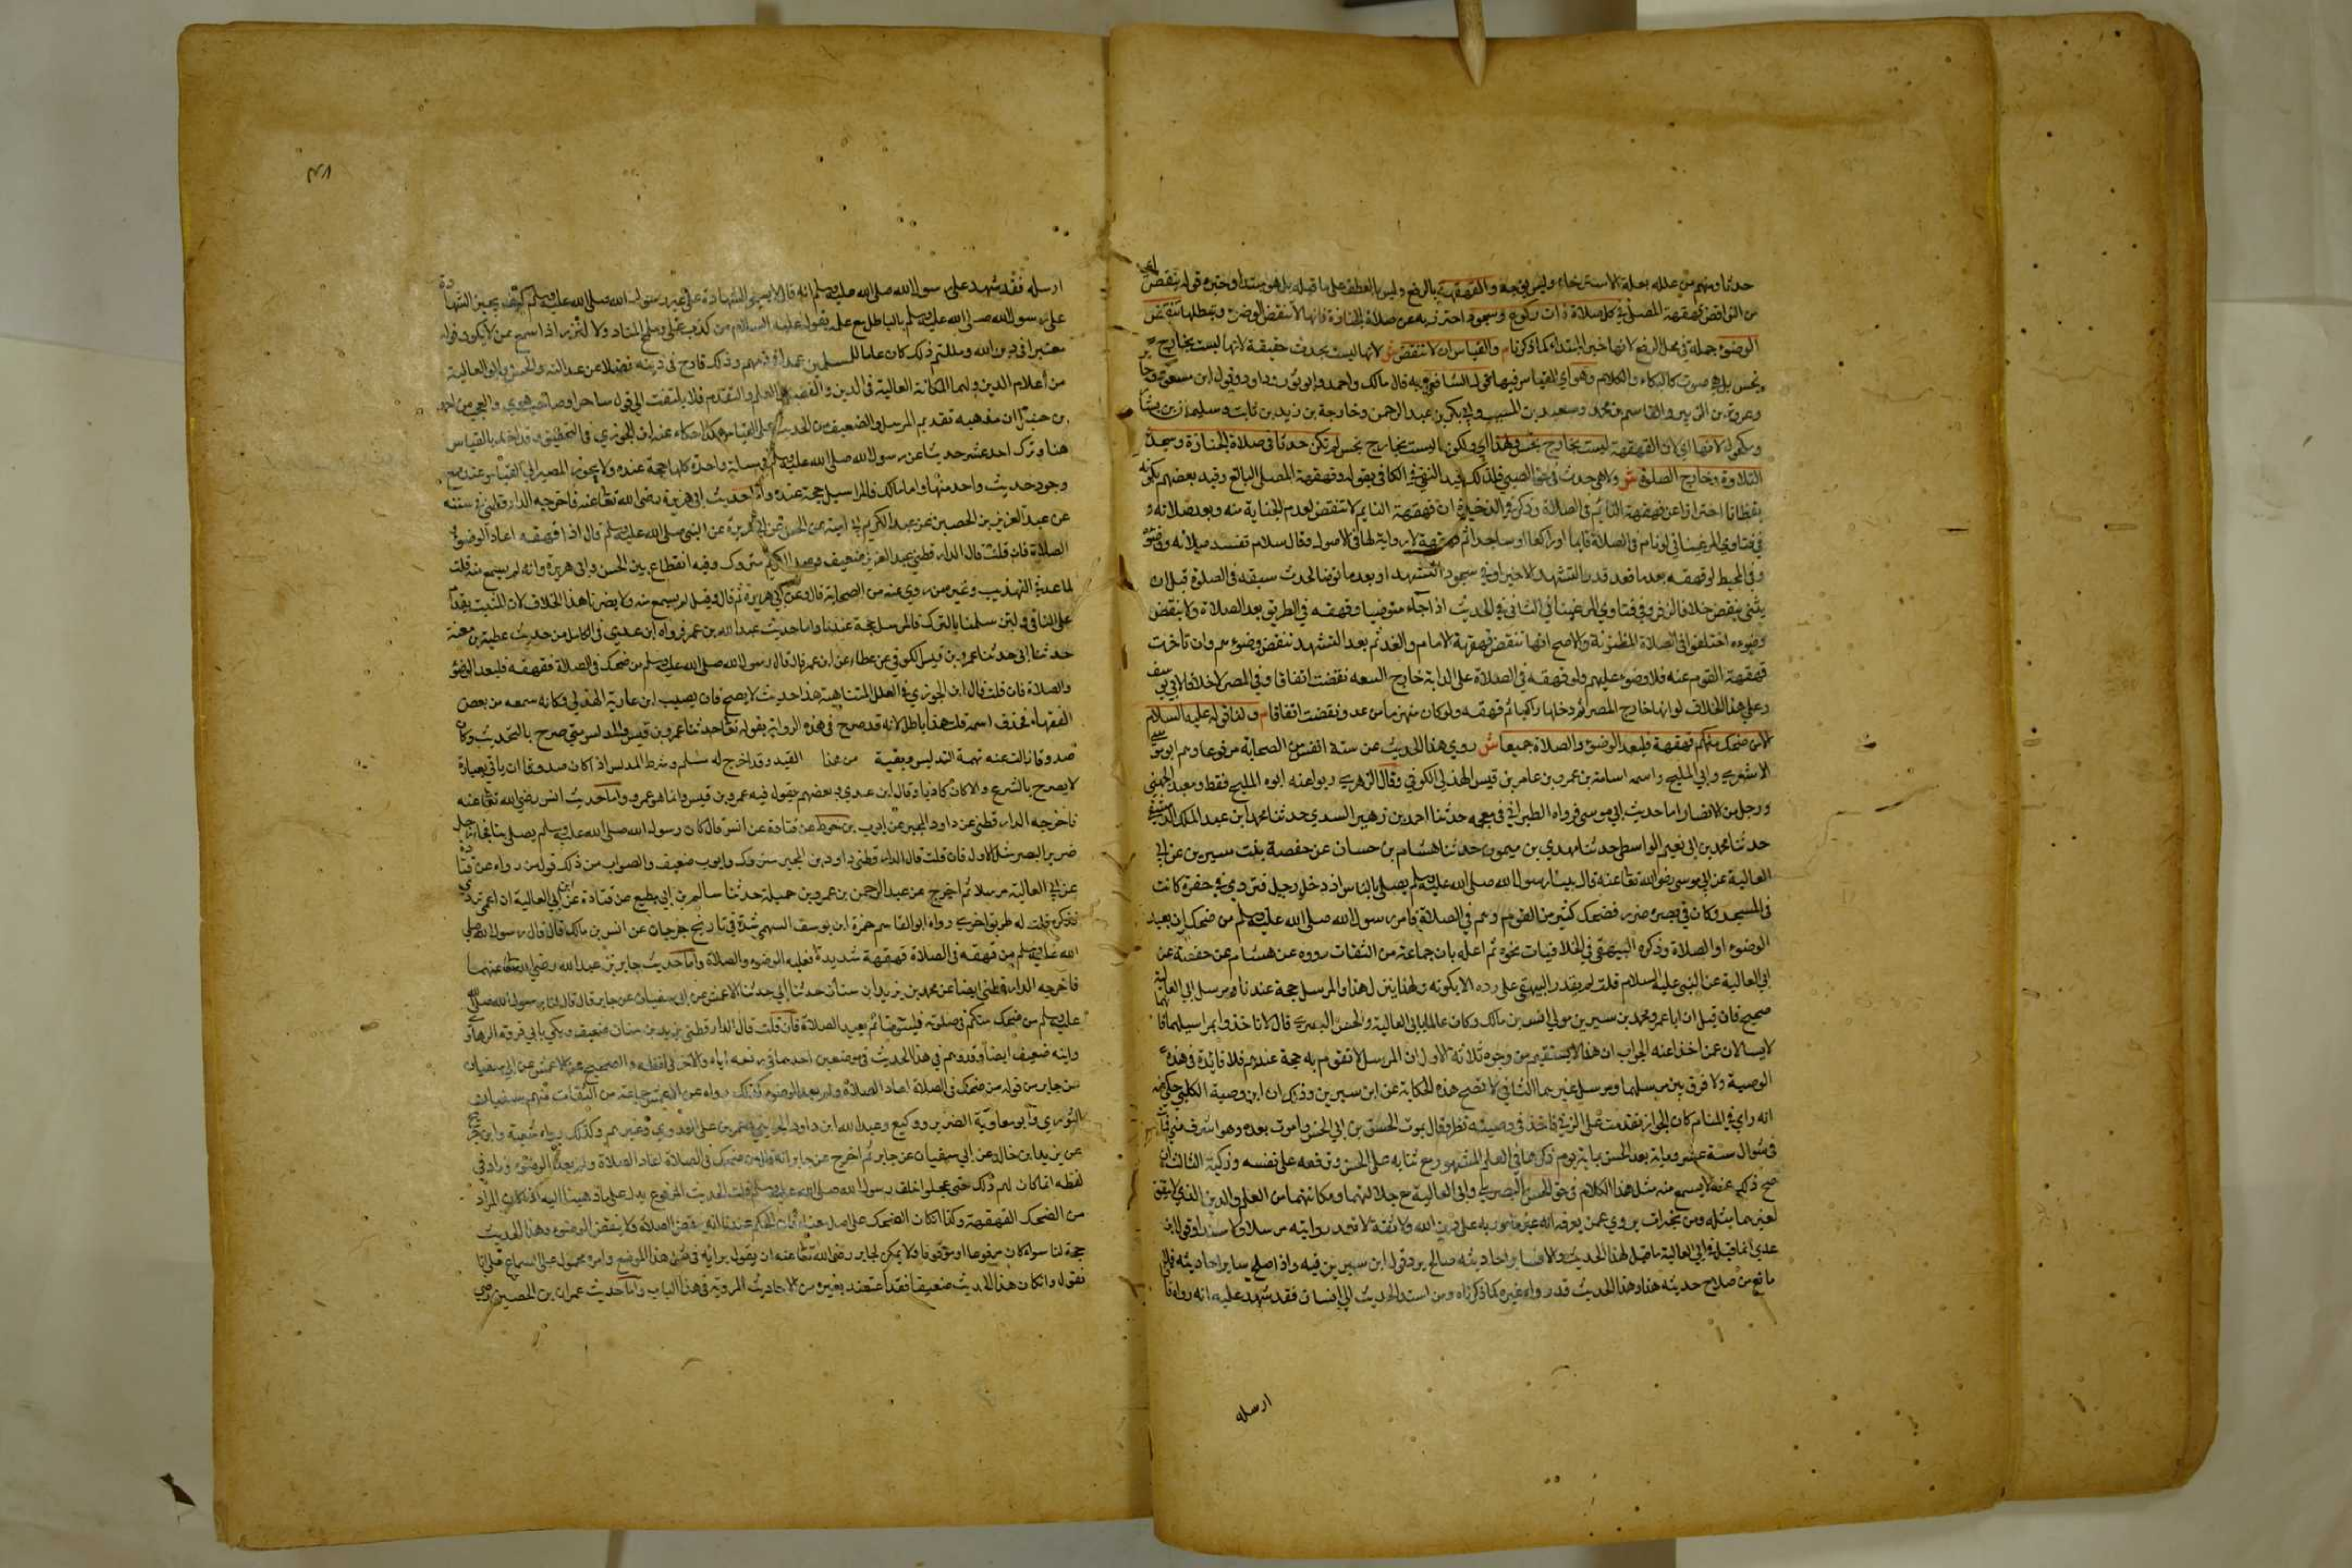 حدثا ومنهم من علله بعلة الاسترخاء وليس بمتجه والقهقهة بالرفع وليس بالعطف على ما قبله بل هو مبتدأ وخبره قوله ينقض اي
من النواقض قهقهة المصلي في كل صلاة ذات ركوع وسجود احترز به عن صلاة الجنازة فانها لا تنقض الوضوء وتبطلها تنقض
الوضوء جملة في محل الرفع لانها خبر المبتداء كما ذكرنا م والقياس ان لا تنقض ش لانها ليست بحدث حقيقة لانها ليست بخارج
نجس بل هي صوت كالبكاء والكلام وهو اي القياس فيها قول الشافعي وبه قال مالك واحمد وابو ثور وداود وقول ابن مسعود وجابر
وعروة بن الزبير والقاسم بن محمد وسعيد بن المسيب وابي بكر بن عبد الرحمن وخارجة بن زيد بن ثابت وسليمان بن يسار
ومكحول لانها اي لان القهقهة ليست بخارج نجس ولهذا اي ولكونها ليست بخارج نجس لم تكن حدثا في صلاة الجنازة وسجدة
التلاوة وخارج الصلوة ش ولا هي حدث في حق الصبي فلذلك قيد النسفي في الكافي بقوله وقهقهة المصلي البالغ وقيد بعضهم بكونه
يقظانا احترازا عن قهقهة النائم في الصلاة وذكر في الذخيرة ان قهقهة النايم لا تنقض لعدم الجناية منه وبعد صلاته و
في فتاوي المرغيناني لو نام في الصلاة قايما او راكعا او ساجدا ثم قهقهة لا رواية لها في الاصول وقال سلام تفسد صلاته ووضوءه
وفي المحيط لو قهقه بعد ما قعد قدر التشهد الاخير او في سجود التشهد او بعد ما توضا لحدث سبقه في الصلوة قبل ان
يبني ينقض خلافا لزفر وفي فتاوي المرغيناني في الثاني في الحديث اذا جاء متوضيا وقهقه في الطريق بعد الصلاة ولا ينقض
وضوءه اختلفوا في الصلاة المظنونة والاصح انها تنقض قهقهة الامام والقوم بعد التشهد تنقض وضوءهم وان تأخرت
قهقهة القوم عنه فلا وضوء عليهم ولو قهقه في الصلاة على الدابة خارج السعه نقضت اتفاقا وفي المصر لا خلافا لابي يوسف
وعلى هذا الخلاف لو انها خارج المصر ثم دخلها راكبا ثم قهقه ولو كان منهزما من عدو نقضت اتفاقا م ولنا قوله عليه السلام
الا من ضحك منكم قهقهة فليعد الوضوء والصلاة جميعا ش روي هذا الحديث عن ستة انفس من الصحابة مرفوعا وهم ابو موسى
الاشعري وابي المليح واسمه اسامة بن عمرو بن عامر بن قيس الهذلي الكوفي وقال الزهري ربوا عنه ابوه المليح فقط ومعبد الجهني
ورجل من الانصار اما حديث ابي موسى فرواه الطبراني في معجمه حدثنا احمد بن زهير السدي حدثنا محمد ابن عبد الملك الدقيقي
حدثنا محمد بن ابي نعيم الواسطي حدثنا مهدي بن ميمون حدثنا هشام بن حسان عن حفصة بنت سيرين عن ابي
العالية عن ابي موسى رضي الله تعالى عنه قال بينا رسول الله صلى الله عليه وسلم يصلي بالناس اذ دخل رجل فتردي في حفرة كانت
في المسجد وكان في بصره ضرر فضحك كثير من القوم وهم في الصلاة فامر رسول الله صلى الله عليه وسلم من ضحك ان يعيد
الوضوء او الصلاة وذكره البيهقي في الخلافيات نحوه ثم اعله بان جماعة من الثقات رووه عن هشام عن حفصة عن
ابي العالية عن النبي عليه السلام قلت لم يقدر البيهقي على رده الا بكونه ولهذا ينزل هنا والمرسل حجة عندنا ومرسل ابي العالية
صحيح فان قيل ان ابا عمرو محمد بن سيرين مولي انس بن مالك وكان عالما بابي العالية والحسن البصري قال لا تاخذوا بمراسيلهما فانهما
لا يسالان عمن اخذا عنه الجواب ان هذا لا يستقيم من وجوه ثلاثة الاول ان المرسل لا تقوم به حجة عندهم فلا فائدة في هذه
الوصية ولا فرق بين مرسلهما ومرسل غيرهما الثاني لا تصح هذه الحكاية عن ابن سيرين وذكر ان ابن وصية الكلبي حكى عنه
انه راي في المنام كان الجوازا تقدمت على الثريا فاخذ في وصيته نظر وقال يموت الحسن بن ابي الحسن واموت بعده وهو اشرف مني فمات
في شوال سنة عشر ومايه بعد الحسن بماية يوم ذكر هما في العلم المشهور مع ثنايه على الحسن ورفعه على نفسه وتزكية الثالث ان
صح ذلك عنه لا يسمع منه مثل هذا الكلام في حق الحسن البصري وابي العالية مع جلالتهما ومكانتهما من العلم والدين الذي لا يتفق
لغيرهما مثله ومن تجرات يروي عمن يعرف انه غير مامون به على دين الله ولا ثقة لا تعد روايته مرسلا ومسندا وقول ابن
عدي انما قيل في ابي العالية ما قيل لهذا الحديث والا فساير احاديثه صالح يرد قول ابن سيرين فيه واذا صلح ساير احاديثه فاي
مانع من صلاح حديثه هنا وهذا الحديث قد رواه غيره كما ذكرناه ومن اسند الحديث الى انسان فقد شهد عليه انه رواه فاذا
ارسله
٤٨
ارسله فقد شهد على رسول الله صلى الله عليه وسلم انه قال لا يجوز الشهادة على غير رسول الله صلى الله عليه وسلم كيف يجيز الشهادة
على رسول الله صلى الله عليه وسلم بالباطل مع علمه بقوله عليه السلام من كذب علي وملم المتاد ولا لتزيد اذا سمع ممن لا يكون قوله
معتبرا في دين الله وملتم ذلك كان علما للمسلمين عمدا فيهم وذلك قادح في دينه فضلا عن عدالته والحسن وابو العالية
من أعلام الدين ولهما المكانة العالية في الدين والفضيلة العلم والتقدم فلا يلتفت الى قول ساحر او صاحب هوي والعجب من احمد
بن حنبل ان مذهبه تقديم المرسل والضعيف من الحديث على القياس هكذا حكاه عنه ابن الجوزي في التحقيق وقد اخذ بالقياس
هنا وترك احد عشر حديثا عن رسول الله صلى الله عليه وسلم في مسلة واحدة كلها حجة عنده ولا يجوز المصير الى القياس عنده مع
وجود حديث واحد منها واما مالك فالمراسيل حجة عنده واما حديث ابي هريرة رضي الله تعالى عنه فاخرجه الدارقطني في سننه
عن عبد العزيز بن الحصين عن عبد الكريم ابي امية عن الحسن عن ابي هريرة عن النبي صلى الله عليه وسلم قال اذا قهقه اعاد الوضوء و
الصلاة فان قلت قال الدارقطني عبد العزيز ضعيف وعبد الكريم متروك وفيه انقطاع بين الحسن وابي هريرة وانه لم يسمع منه قلت
لما عد في التهذيب وغيره من روي عنه من الصحابة قال وعن ابي هريرة ثم قال وقيل لم يسمع منه ولا يضرنا هذا الخلاف لان المثبت يقدم
على النافي ولئن سلمنا بالترك فالمرسل حجة عندنا واما حديث عبد الله بن عمر فرواه ابن عدي في الكامل من حديث عطية بن بقية
حدثنا ابي حدثنا عمرو بن قيس الكوفي عن عطاء عن ابن عمر قال قال رسول الله صلى الله عليه وسلم من ضحك في الصلاة قهقهه فليعد الوضوء
والصلاة فان قلت قال ابن الجوزي في العلل المتناهية هذا حديث لا يصح فان بصيب ابن عادية الهذلي فكانه سمعه من بعض
الفقهاء فحذف اسمه قلت هذا باطل لانه قد صرح في هذه الرواية بقوله تعالى حدثنا عمرو بن قيس والمدلس متى صرح بالتحديث وكان
صدوقا زالت عنه تهمة التدليس وبقية من هذا القيد وقد اخرج له مسلم وشرط المدلس اذا كان صدوقا ان ياتي بعبارة
لا يصرح بالشرع والا كان كاذبا وقال ابن عدي وبعضهم يقول فيه عمرو بن قيس وانما هو عمرو واما حديث انس رضي الله تعالى عنه
فاخرجه الدارقطني عن داود المحبر عن ايوب بن خوط عن قتادة عن انس قال كان رسول الله صلى الله عليه وسلم يصلي بنا فجاء رجل
ضرير البصر مثل الاول فان قلت قال الدارقطني داود بن المحبر متروك وايوب ضعيف والصواب من ذلك قول من رواه عن قتادة
عن ابي العالية مرسلا ثم اخرج عن عبد الرحمن بن عمرو بن جميلة حدثنا سالم بن ابي مطيع عن قتادة عن ابي العالية ان اعمى تردي
فذكره قلت له طريق اخرى رواه ابو القاسم حمزة ابن يوسف السهمي في تاريخ جرجان عن انس بن مالك قال قال رسول الله صلى
الله عليه وسلم من قهقه في الصلاة قهقهة شديدة فعليه الوضوء والصلاة واما حديث جابر بن عبد الله رضي الله تعالى عنهما
فاخرجه الدارقطني ايضا عن محمد بن يزيد ابن سنان حدثنا ابي حدثنا الاعمش عن ابي سفيان عن جابر قال قال لنا رسول الله صلى الله
عليه وسلم من ضحك منكم في صلوته فليتوضا ثم يعيد الصلاة فان قلت قال الدارقطني يزيد بن سنان ضعيف ويكنى بابي فروة الرهاوي
وابنه ضعيف ايضا وقد وهم في هذا الحديث في موضعين احدهما في رفعه اياه والاخر في لفظه والصحيح عن الاعمش عن ابي سفيان
عن جابر من قوله من ضحك في الصلاة اعاد الصلاة ولم يعد الوضوء وكذلك رواه عن الاعمش جماعة من الثقات منهم سفيان
الثوري وابو معاوية الضرير ووكيع وعبد الله ابن داود الخريبي وعمر بن علي المقدمي وغيرهم وكذلك رواه شعبة وابن جريج
عن يزيد ابن خالد عن ابي سفيان عن جابر ثم اخرج عن جابر انه قال من ضحك في الصلاة اعاد الصلاة ولم يعد الوضوء وزاد في
لفظه انما كان لهم ذلك حتى ضحكوا خلف رسول الله صلى الله عليه وسلم قلت الحديث المرفوع يدل على ما ذهبنا اليه اذا كان المراد
من الضحك القهقهة وكذا اذا كان الضحك على اصل معناه فان الحكم عندنا انه ينقض الصلاة ولا ينقض الوضوء وهذا الحديث
حجة لنا سواء كان مرفوعا او موقوفا ولا يمكن لجابر رضي الله تعالى عنه ان يقول برايه في مثل هذا الموضع وامره محمول على السماع قلنا
نقول وان كان هذا الحديث ضعيفا فقد اعتضد بغيره من الاحاديث المروية في هذا الباب واما حديث عمران بن الحصين رضي